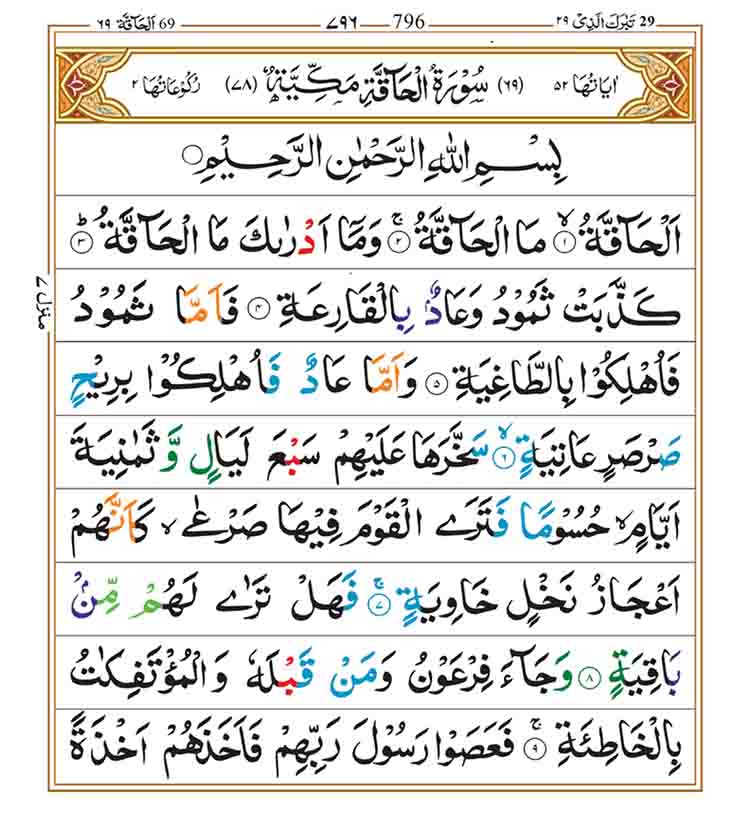 29 تَبٰرَكَ الَّذِیْ ٢٩ 796 ٧٩٦ اَلْحَآقَّة 69 ٦٩
اٰیَاتُهَا ٥٢ (٦٩) سُوْرَةُ الْحَآقَّةِ مَکِّیَّةٌ (٧٨) رُکُوْعَاتُهَا ٢
بِسْمِ اللّٰهِ الرَّحْمٰنِ الرَّحِیْمِ
اَلْحَآقَّةُ ۙ﴿١﴾ مَا الْحَآقَّةُ ۚ﴿٢﴾ وَمَاۤ اَدْرٰىكَ مَا الْحَآقَّةُ ؕ﴿٣﴾
كَذَّبَتْ ثَمُوْدُ وَعَادٌۢ بِالْقَارِعَةِ ﴿٤﴾ فَاَمَّا ثَمُوْدُ
فَاُهْلِكُوْا بِالطَّاغِیَةِ ﴿٥﴾ وَاَمَّا عَادٌ فَاُهْلِكُوْا بِرِیْحٍ
صَرْصَرٍ عَاتِیَةٍ ۙ﴿٦﴾ سَخَّرَهَا عَلَیْهِمْ سَبْعَ لَیَالٍ وَّ ثَمٰنِیَةَ
اَیَّامٍ ۙ حُسُوْمًا فَتَرَى الْقَوْمَ فِیْهَا صَرْعٰى ۙ كَاَنَّهُمْ
اَعْجَازُ نَخْلٍ خَاوِیَةٍ ۚ﴿٧﴾ فَهَلْ تَرٰى لَهُمْ مِّنْۢ
بَاقِیَةٍ ﴿٨﴾ وَجَآءَ فِرْعَوْنُ وَمَنْ قَبْلَهٗ وَالْمُؤْتَفِكٰتُ
بِالْخَاطِئَةِ ۚ﴿٩﴾ فَعَصَوْا رَسُوْلَ رَبِّهِمْ فَاَخَذَهُمْ اَخْذَةً
منزل ٧